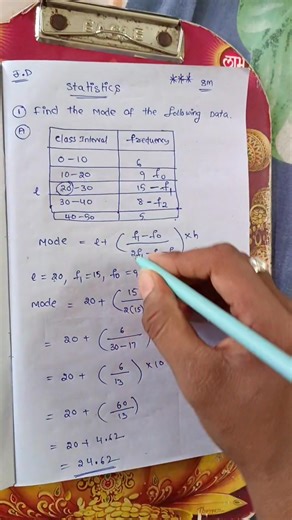 J.D
Statistics
*** 8M
① Find the Mode of the following Data.
Ⓐ
Class Interval Frequency
0-10 6
10-20 9 f₀
l 20-30 15 - f₁
30-40 8 - f₂
40-50 5
Mode = l + (f₁-f₀ / 2f₁-) × h
l = 20, f₁ = 15, f₀ = 9
Mode = 20 + (15 / 2(15)
= 20 + (6 / 30-17)
= 20 + (6 / 13) × 10
= 20 + (60 / 13)
= 20 + 4.62
= 24.62